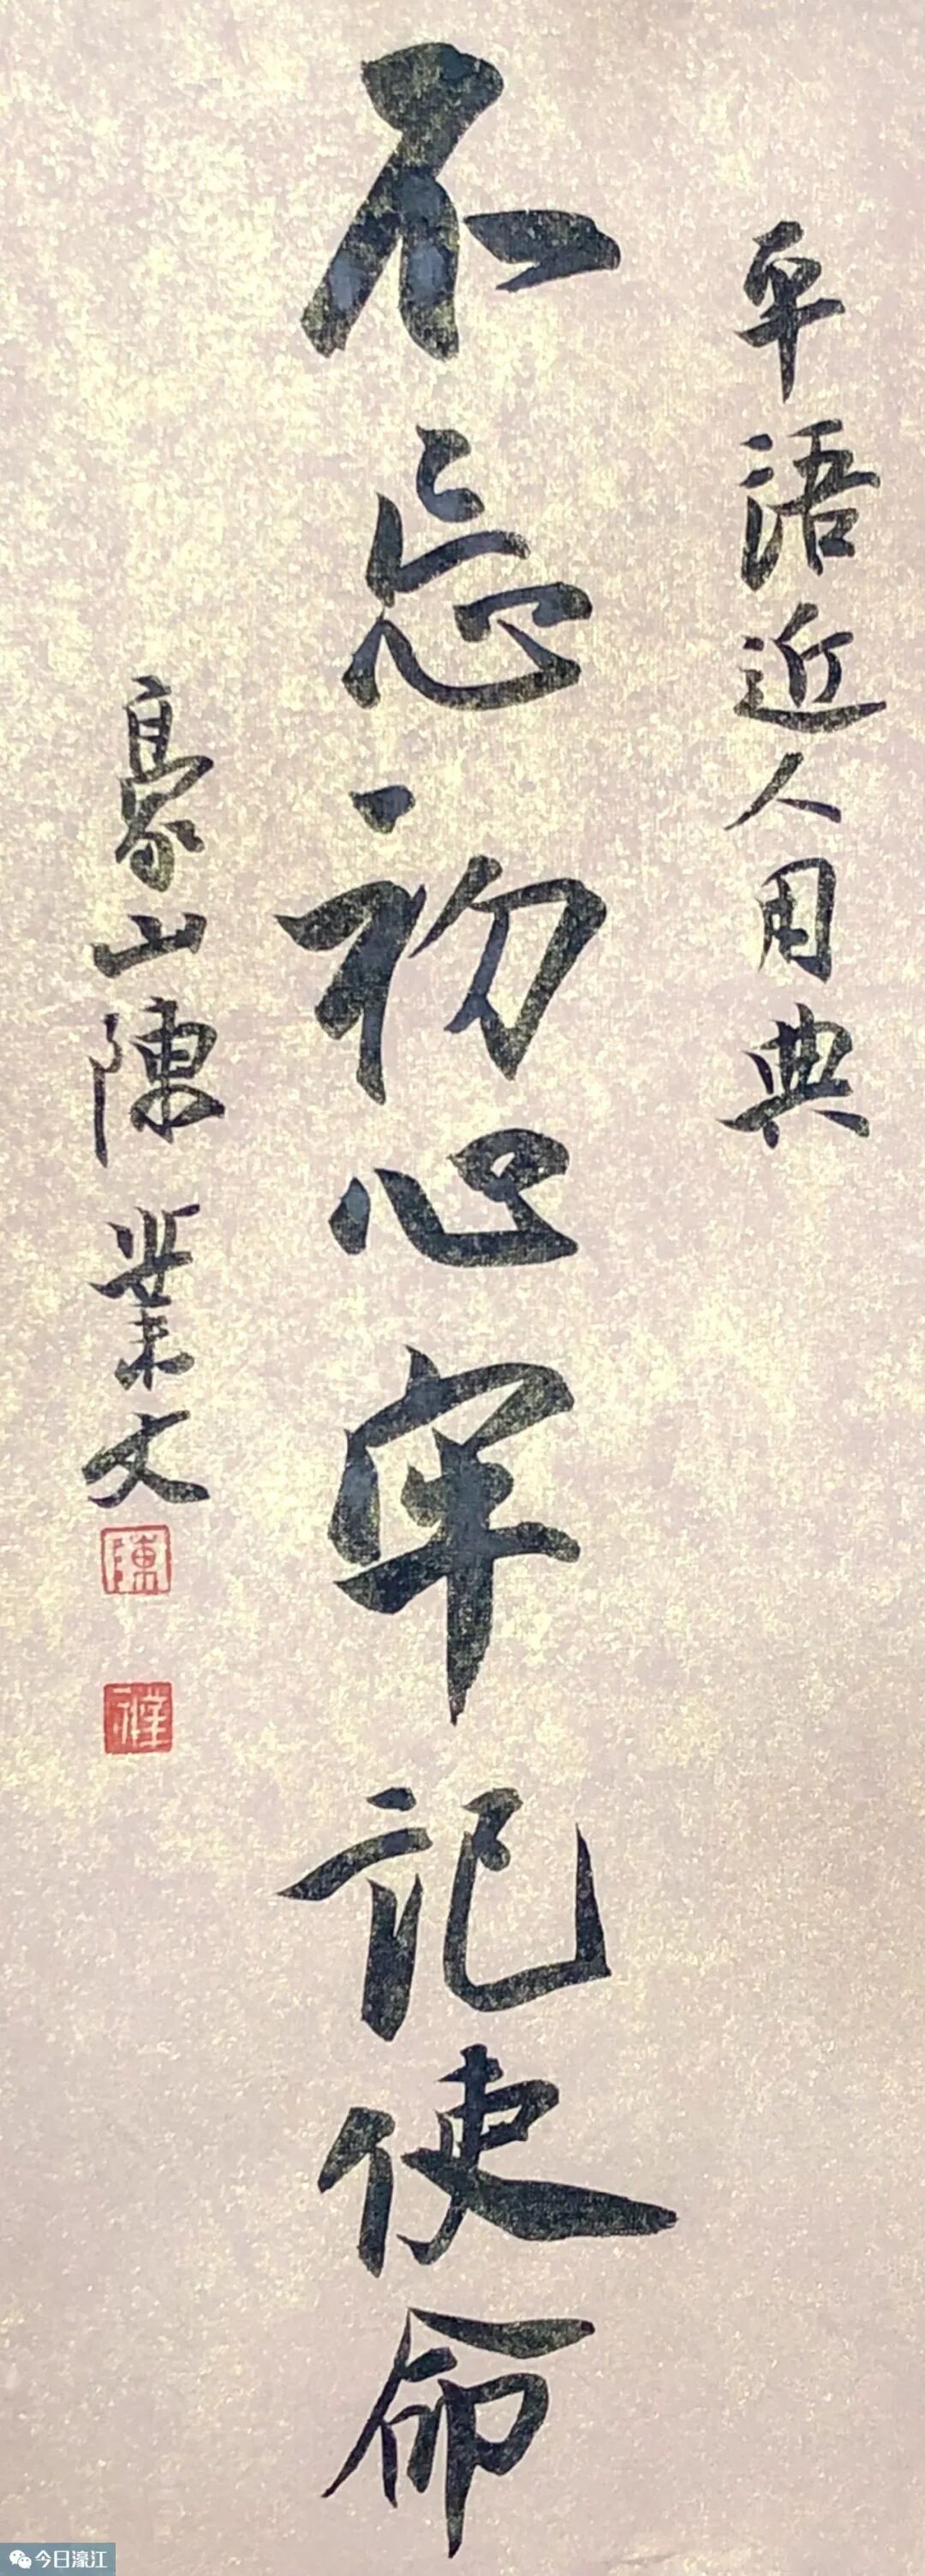 平语近人用典
不忘初心牢记使命
豪山陳業文
陳
今日濠江